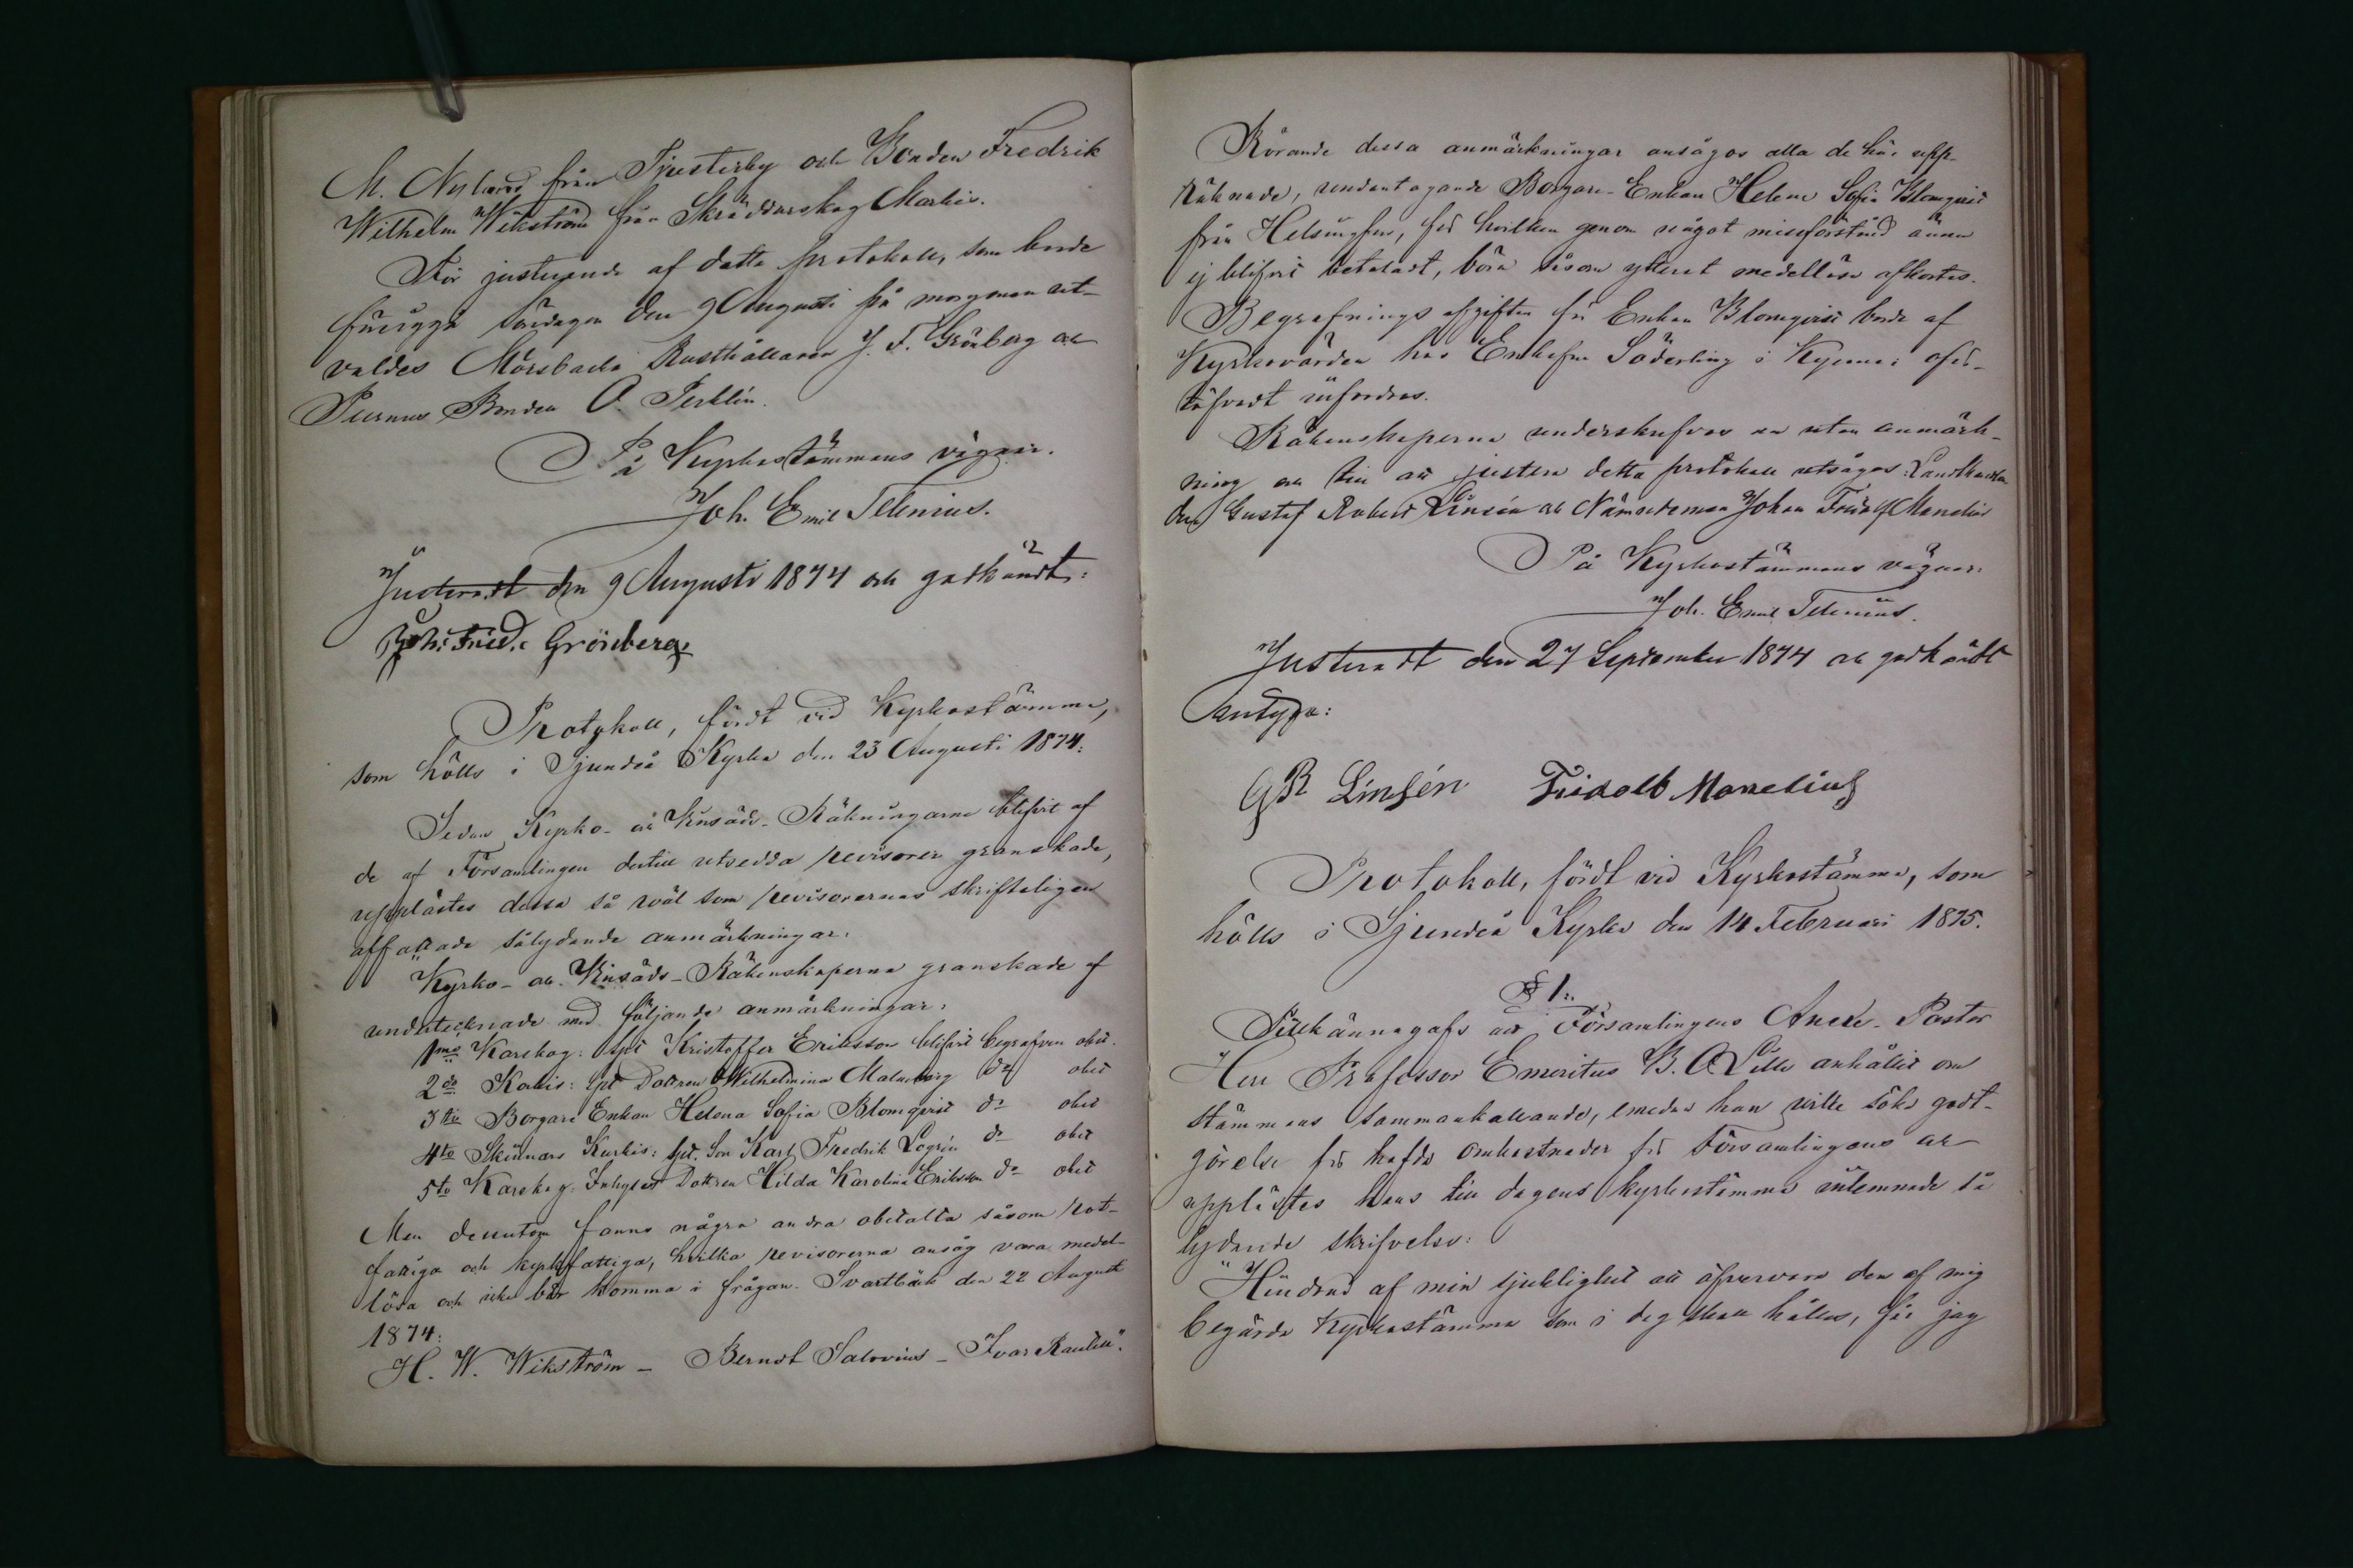 M. Nylund från Tjusterby och Bonden Fredrik
Wilhelm Wikström från Skräddarskog Markis.
För justerande af detta protokoll, som borde
försiggå söndagen den 9 Augusti på morgonen ut-
valdes Mörsbacka Rusthållaren J. F. Grönberg och
Purnus Bonden O. Perklin.
På Kyrkostämmans vägnar.
Joh. Emil Telenius.
Justeradt den 9 Augusti 1874 och godkändt:
Joh: Fried: Grönberg
Protokoll, fördt vid Kyrkostämma,
som hölls i Sjundeå Kyrka den 23 Augusti 1874.
Sedan Kyrko- och Krisäds-Räkningarna blifvit af
de af Församlingen dertill utsedda revisorer granskade,
upplästes dessa så wäl som revisorernas skrifteligen
affattade sålydande anmärkningar.
Kyrko- och Krisäds-Räkenskaperna granskade af
undertecknade med följande anmärkningar:
1mo Karskog: Spt Kristoffer Eriksson blifvit begrafven obet.
2do Kabis: Spt Dottren Wilhelmina Malmberg do obet
3tio Borgare Enkan Helena Sofia Blomqvist do obet
4to Skinnars Kurkis: Spt. Son Karl Fredrik Logrén do obet
5to Karskog: Inhyses Dottren Hilda Karolina Eriksson do obet
Men dessutom fanns några andra obetalta såsom rot-
fattiga och kyrkfattiga, hvilka revisorerna ansåg vara medel-
lösa och icke bör komma i frågan. Svartbäck den 22 August
1874.
H. W. Wikström - Berndt Salovius - Ivar Rautell".
Rörande dessa anmärkningar ansågos alla de här upp-
räknade, undantagande Borgare-Enkan Helena Sofia Blomqvist
från Helsingfors, för hvilken genom något missförstånd ännu
ej blifvit betaladt, böra såsom ytterst medellösa afkortas.
Begrafnings afgiften för Enkan Blomqvist borde af
Kyrkovärden hos Enkefru Söderling i Kyrna: oför-
töfvadt infordras.
Räkenskaperna underskrefvos nu utan anmärk-
ning och till att justera detta protokoll utsågos: Landthand-
den Gustaf Robert Linsén och Nämndeman Johan Fridolf Manelius
På Kyrkostämmans vägnar:
Joh. Emil Telenius.
Justeradt den 27 September 1874 och godkändt
intyga:
GR Linsén Fridolf Manelius
Protokoll, fördt vid Kyrkostämma, som
hölls i Sjundeå Kyrka den 14 Februari 1875.
§ 1:
Tillkännagafs att Församlingens Andre-Pastor
Herr Professor Emeritus B. O Lille anhållit om
stämmans sammankallande, emedan han ville söka godt-
görelse för hafda omkostnader för Församlingens och
upplästes hans till dagens kyrkostämma inlemnade så
lydande skrifvelse:
"Hindrad af min sjuklighet att öfvervara den af mig
begärda Kyrkostämma som i dag skall hållas, får jag